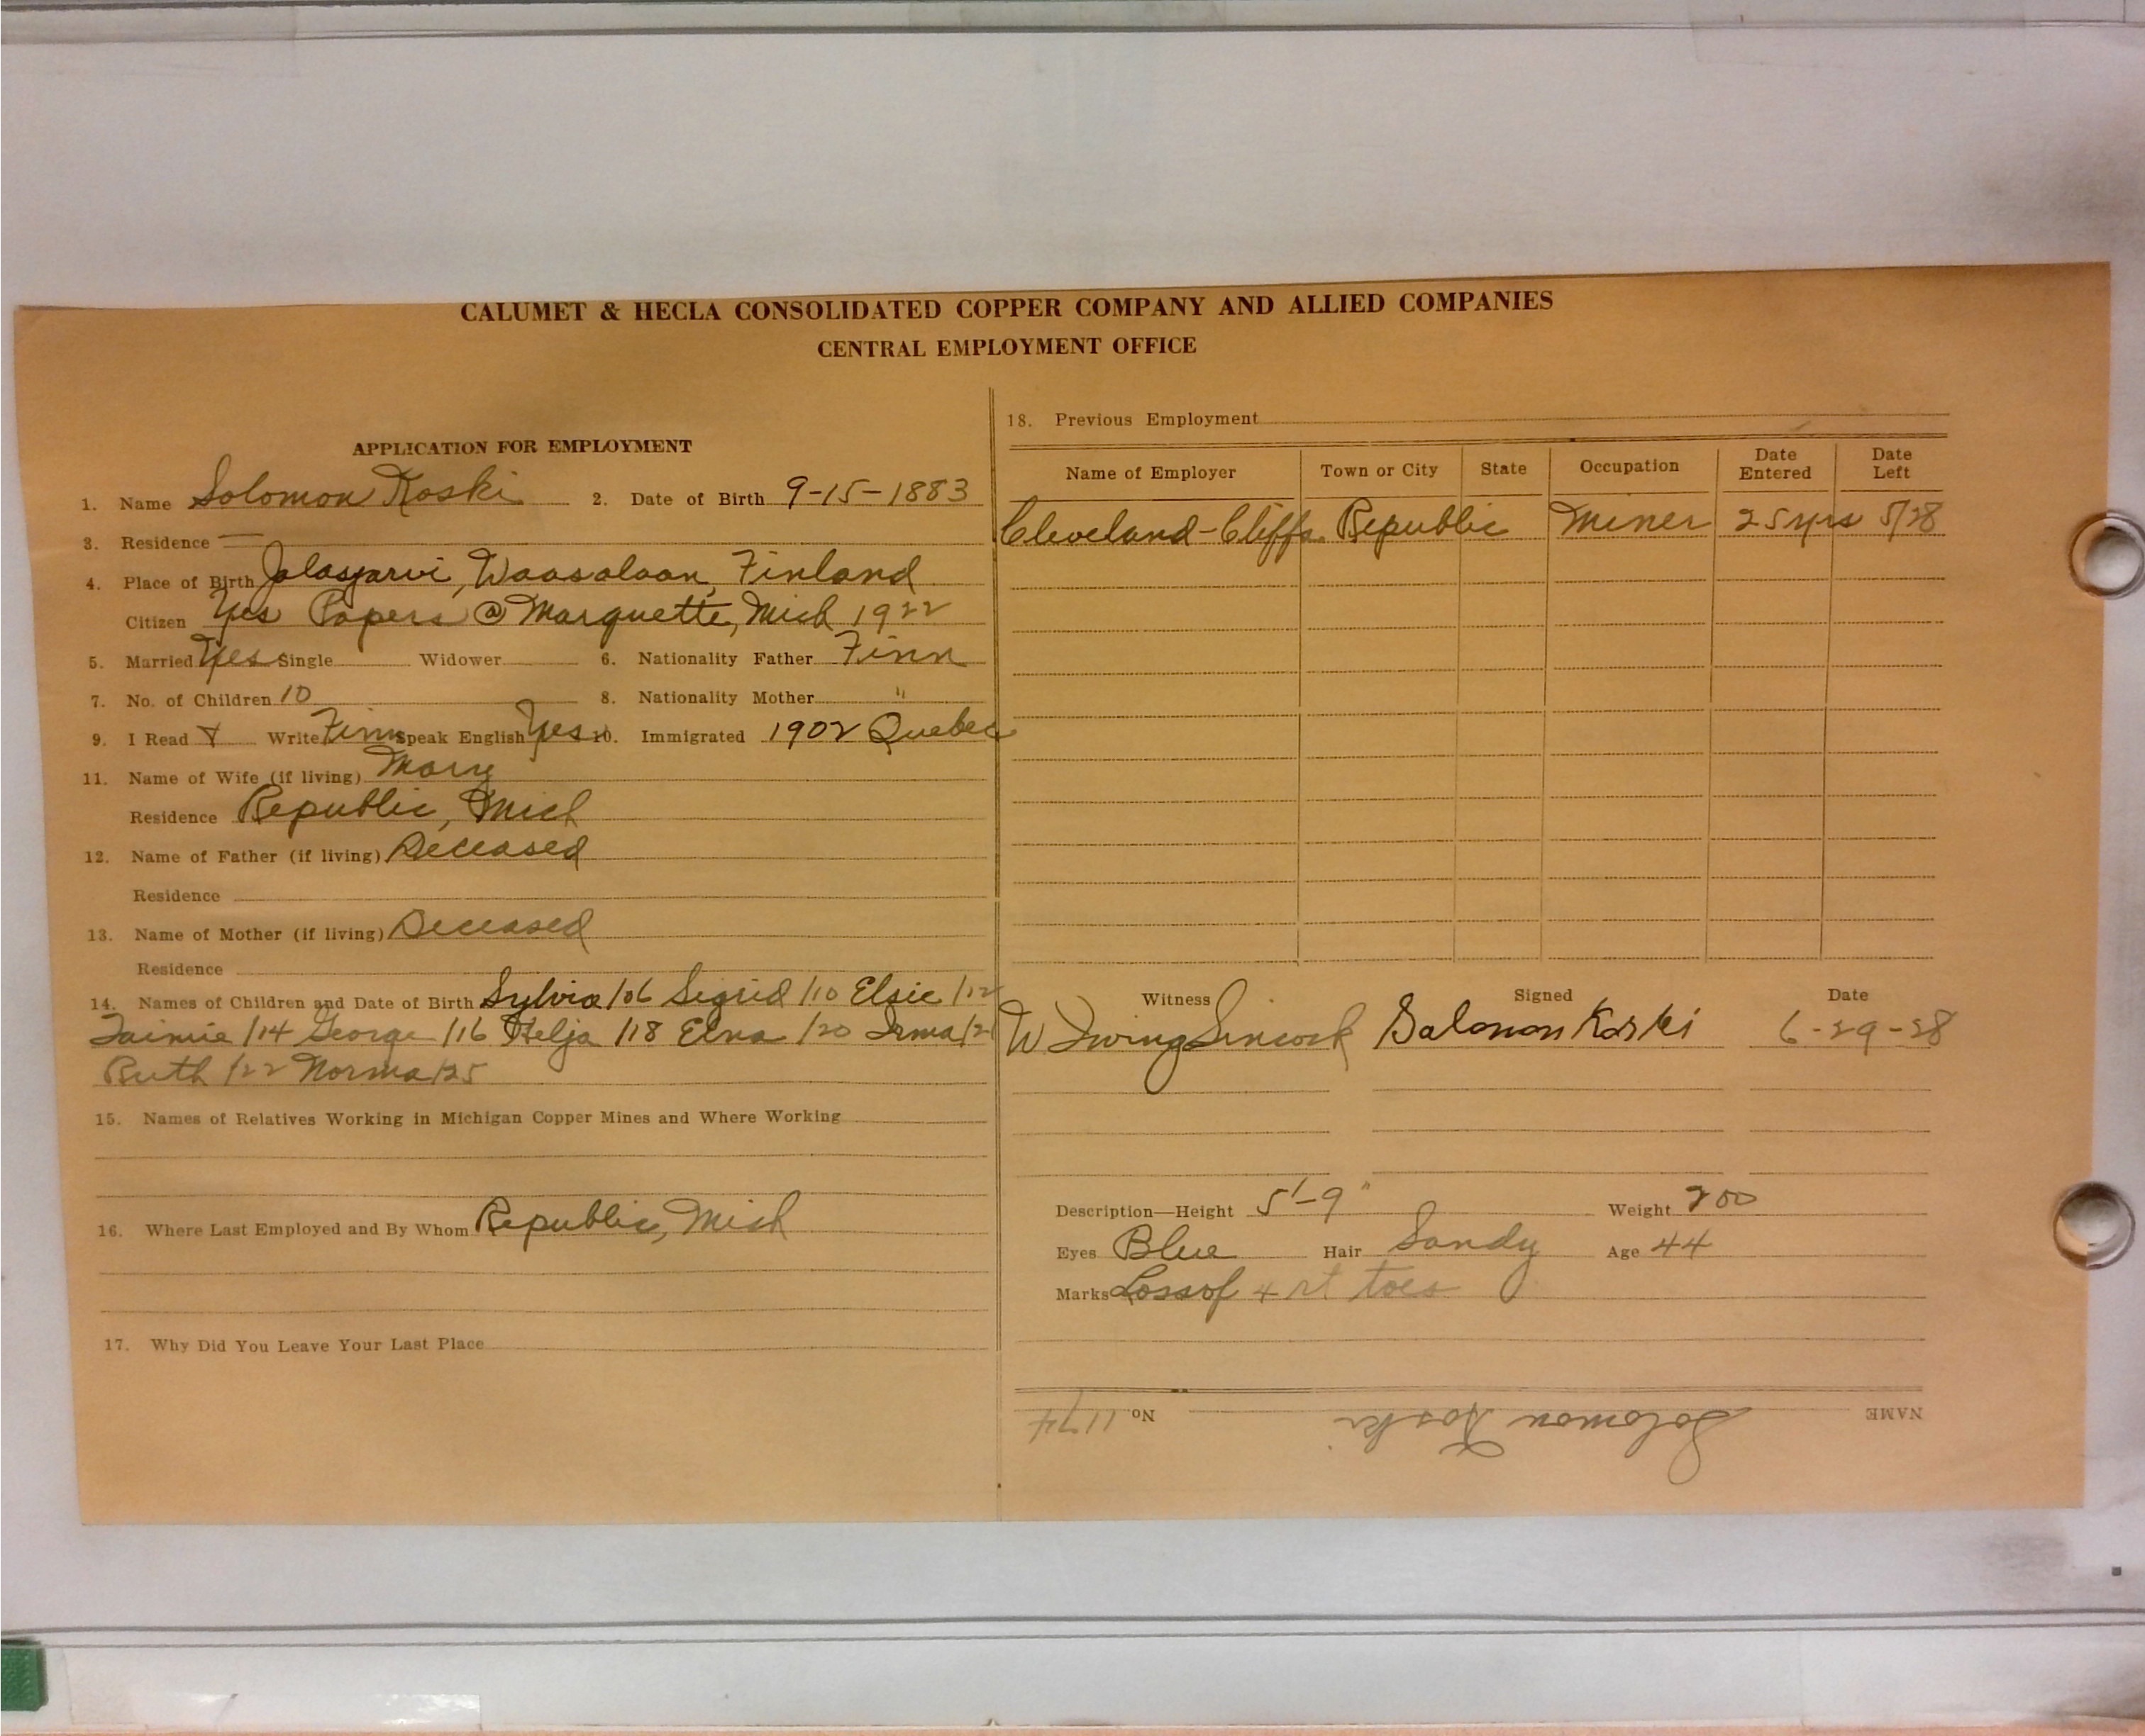 CALUMET & HECLA CONSOLIDATED COPPER COMPANY AND ALLIED COMPANIES
CENTRAL EMPLOYMENT OFFICE
APPLICATION FOR EMPLOYMENT
1. Name Solomon Koski 2. Date of Birth 9-15-1883
3. Residence —
4. Place of Birth Jalasjarvi, Waasalaan, Finland
Citizen Yes Papers @ Marquette, Mich 1922
5. Married Yes Single Widower 6. Nationality Father Finn
7. No. of Children 10 8. Nationality Mother "
9. I Read Y Write Finn Speak English Yes 10. Immigrated 1902 Quebec
11. Name of Wife (if living) Mary
Residence Republic, Mich
12. Name of Father (if living) Deceased
Residence
13. Name of Mother (if living) Deceased
Residence
14. Names of Children and Date of Birth Sylvia /06 Sigrid /10 Elsie /12
Taimie /14 George /16 Helja /18 Elna /20 Irma /21
Ruth /22 Norma /25
15. Names of Relatives Working in Michigan Copper Mines and Where Working
16. Where Last Employed and By Whom Republic, Mich
17. Why Did You Leave Your Last Place
18. Previous Employment
Name of Employer Town or City State Occupation Date Entered Date Left
Cleveland-Cliffs Republic Miner 25 yrs 5/28
Witness Signed Date
W Irving Sincock Salomon Koski 6-29-28
Description—Height 5'-9" Weight 200
Eyes Blue Hair Sandy Age 44
Marks Loss of 4 rt toes
NAME Solomon Koski No 1174